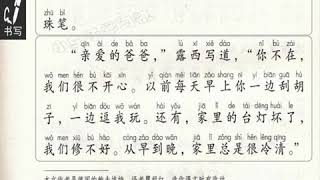 书写
zhū bǐ
珠笔。
qīn ài de bà ba lù xī xiě dào nǐ bú zài
“亲爱的爸爸，”露西写道，“你不在，
wǒ men hěn bù kāi xīn yǐ qián měi tiān zǎo shang nǐ yì biān guā hú
我们很不开心。以前每天早上你一边刮胡
zi yì biān dòu wǒ wán hái yǒu jiā lǐ de tái dēng huài le
子，一边逗我玩。还有，家里的台灯坏了，
wǒ men xiū bù hǎo cóng zǎo dào wǎn jiā lǐ zǒng shì hěn lěng qīng
我们修不好。从早到晚，家里总是很冷清。”